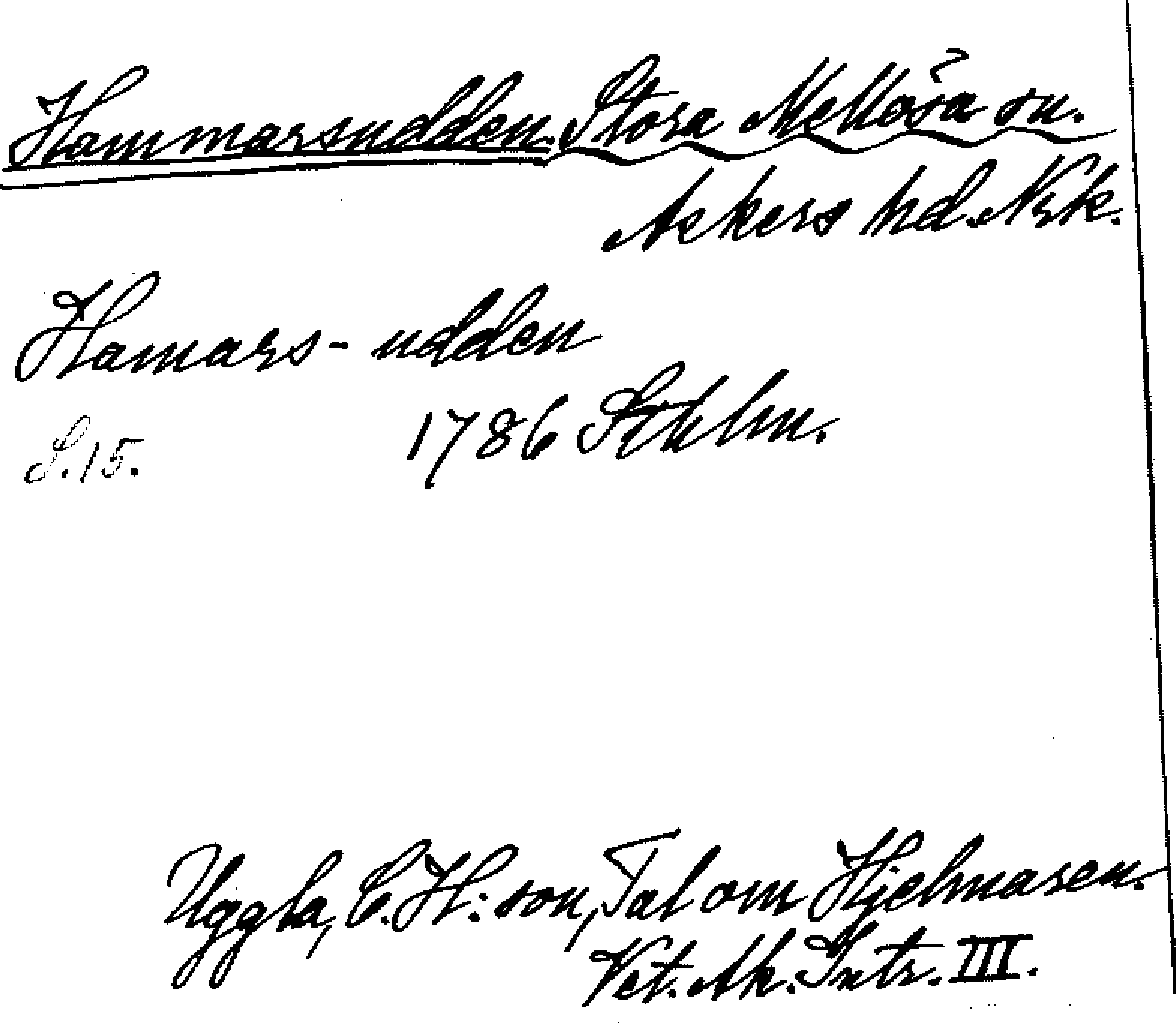 Hammarsudden. Stora Mellösa sn.
Askers hd. Nrk.
Hamars-udden
S.15. 1786 Sthlm.
Uggla, C. H:son, Tal om Hjelmaren.
Vet. Ak. Intr. III.